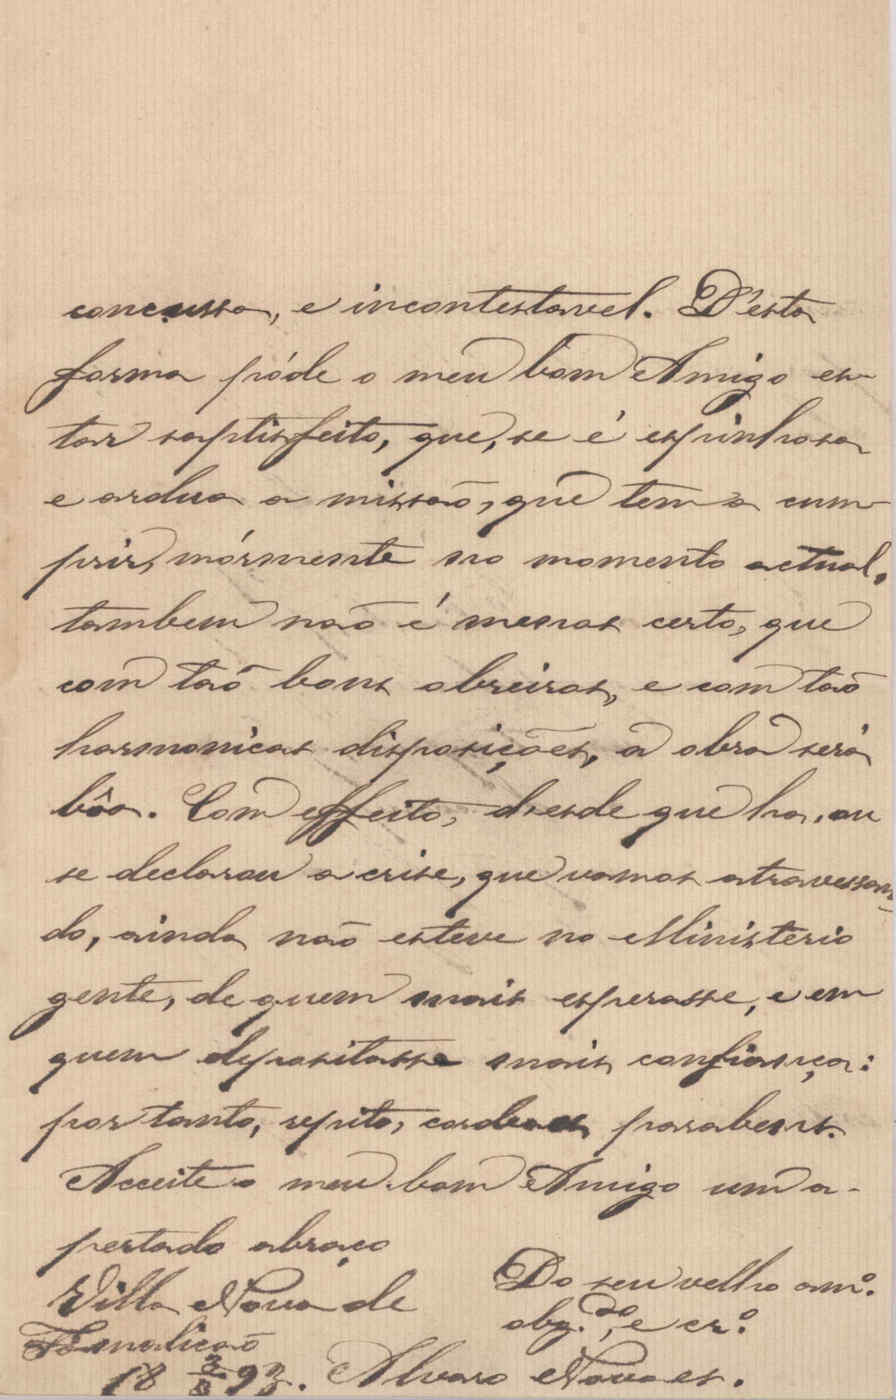 concussa, e incontestavel. D'esta
forma póde o meu bom Amigo es-
tar saptisfeito, que, se é espinhosa
e ardua a missaõ, que tem a cum-
prir, mórmente no momento actual,
tambem naõ é menos certo, que
com taõ bons obreiros, e com taõ
harmonicas disposições, a obra será
bôa. Com effeito, desde que ha, ou
se declarou a crise, que vamos atravessan-
do, ainda naõ esteve no Ministerio
gente, de quem mais esperasse, e em
quem depositasse mais confiança:
por tanto, repito, cordeaes parabens.
Acceite o meu bom Amigo um a-
pertado abraço
Do seu velho am.º
obg.do, e cr.º
Villa Nova de
Famalicaõ
18 3/3 93. Alvaro Novaes.